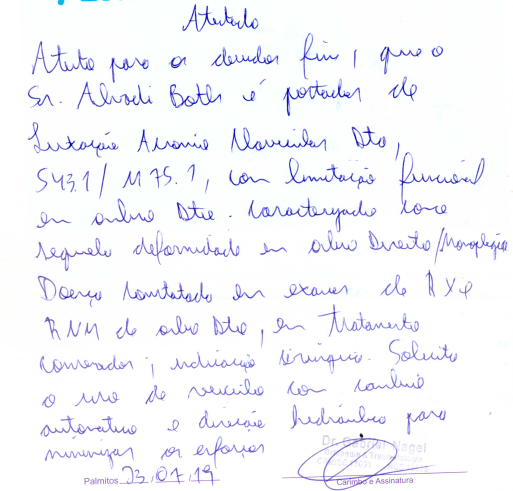 Atestado
Atesto para os devidos fins, que o
Sr. Alvadi Both é portador de
Luxação Acromio Clavicular Dta,
S43.1 / M75.1, com limitação funcional
em ombro Dto. Caracterizado como
sequela deformidade em ombro Direito/Monoplegia
Doença constatada em exames de RX e
RNM de ombro Dto, em Tratamento
conservador, indicação cirúrgica. Solicito
o uso de veículo com cambio
automatico e direção hidráulica para
minimizar os esforços
Dr. Gabriel Nagel
Palmitos 23.07.19
Carimbo e Assinatura